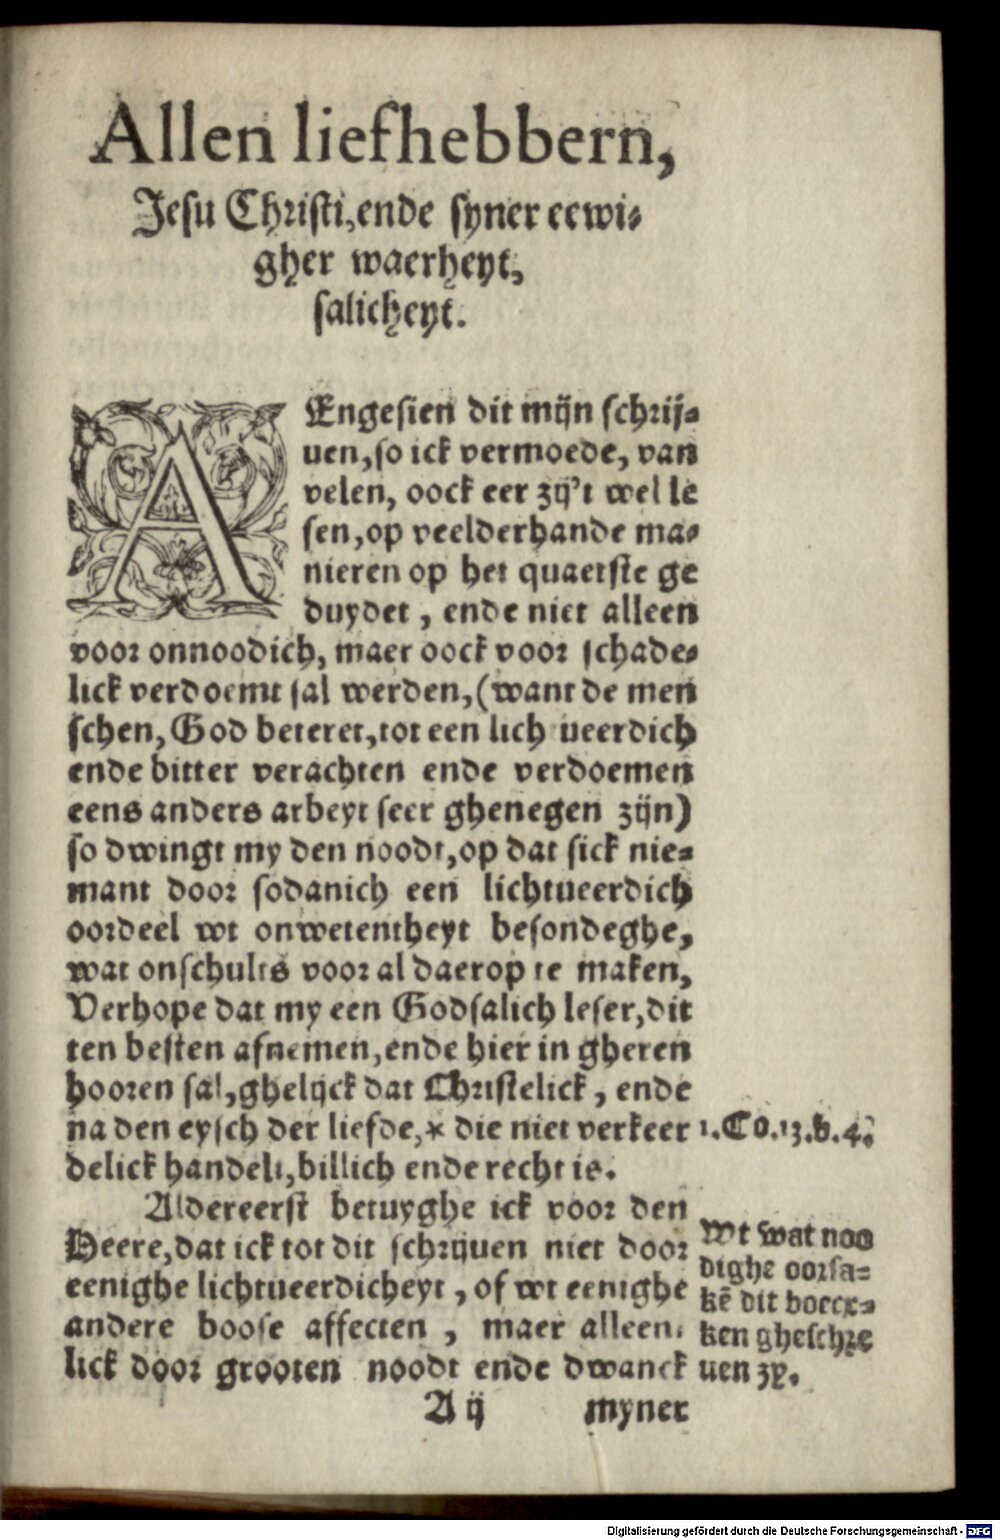 Allen liefhebbern,
Jesu Christi, ende syner eewi⸗
gher waerheyt,
salicheyt.
AEngesien dit mijn schrij⸗
uen, so ick vermoede, van
velen, oock eer zij't wel le
sen, op veelderhande ma⸗
nieren op het quaetste ge
duydet, ende niet alleen
voor onnoodich, maer oock voor schade⸗
lick verdoemt sal werden, (want de men
schen, God beteret, tot een licht ueerdich
ende bitter verachten ende verdoemen
eens anders arbeyt seer ghenegen zijn)
so dwingt my den noodt, op dat sick nie⸗
mant door sodanich een lichtueerdich
oordeel wt onwetentheyt besondeghe,
wat onschults voor al daerop te maken,
Verhope dat my een Godsalich leser, dit
ten besten afnemen, ende hier in gheren
hooren sal, ghelijck dat Christelick, ende
na den eysch der liefde, * die niet verkeer
1. Co. 13. b. 4.
delick handelt, billich ende recht is.
Aldereerst betuyghe ick voor den
Heere, dat ick tot dit schrijuen niet door
eenighe lichtueerdicheyt, of wt eenighe
andere boose affecten, maer alleen⸗
lick door grooten noodt ende dwanck
Wt wat noo
dighe oorsa⸗
kē dit boecx⸗
ken gheschre
uen zy.
A ij myner
Digitalisierung gefördert durch die Deutsche Forschungsgemeinschaft - DFG